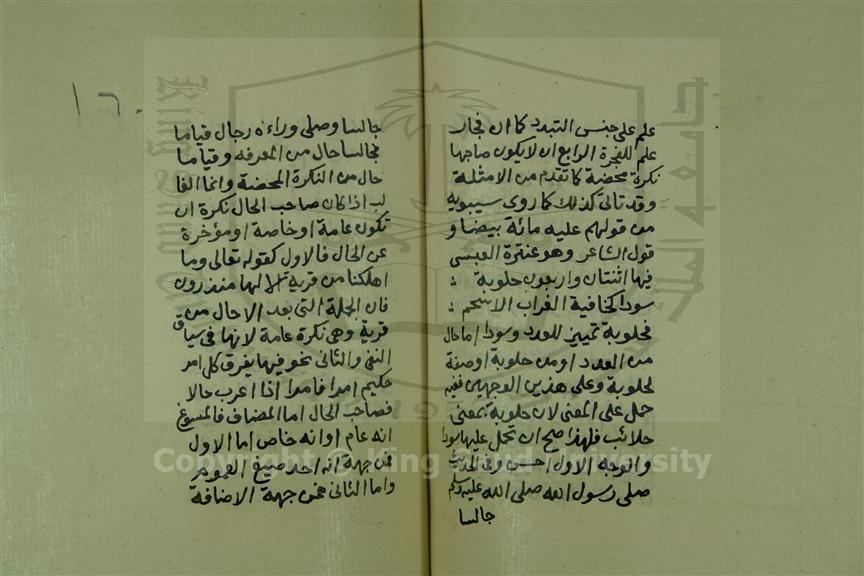 علم على جنس التبدد كما ان فجار
علم للفجرة الرابع ان لا يكون صاحبها
نكرة محضة كما تقدم من الامثلة
وقد تاتى كذلك كما روى سيبويه
من قولهم عليه مائة بيضا و
قول الشاعر وهو عنترة العبسى
فيها اثنتان واربعون حلوبة :
سودا كخافية الغراب الاسحم :
فحلوبة تمييز للعدد وسودا اما حال
من العدد او من حلوبة او صفة
لحلوبة وعلى هذين الوجهين ففيه
حمل على المعنى لان حلوبة بمعنى
حلائب فلهذا صح ان تحمل عليها سودا
والوجه الاول احسن وفى الحديث
صلى رسول الله صلى الله عليه وسلم
جالسا
١٦٠
جالسا وصلى وراءه رجال قياما
فجالسا حال من المعرفه وقياما
حال من النكرة المحضة وانما الغا
لب اذا كان صاحب الحال نكرة ان
تكون عامة او خاصة او مؤخرة
عن الحال فالاول كقوله تعالى وما
اهلكنا من قرية الا لها منذرون
فان الجملة التى بعد الا حال من
قرية وهى نكرة عامة لانها فى سياق
النفى والثانى نحو فيها يفرق كل امر
حكيم امرا فامرا اذا اعرب حالا
فصاحب الحال اما المضاف فالمسوغ
انه عام او انه خاص اما الاول
فمن جهة انه احد صيغ العموم
واما الثانى فمن جهة الاضافة
جامعة الملك
King Saud
1957
Copyright © King Saud University